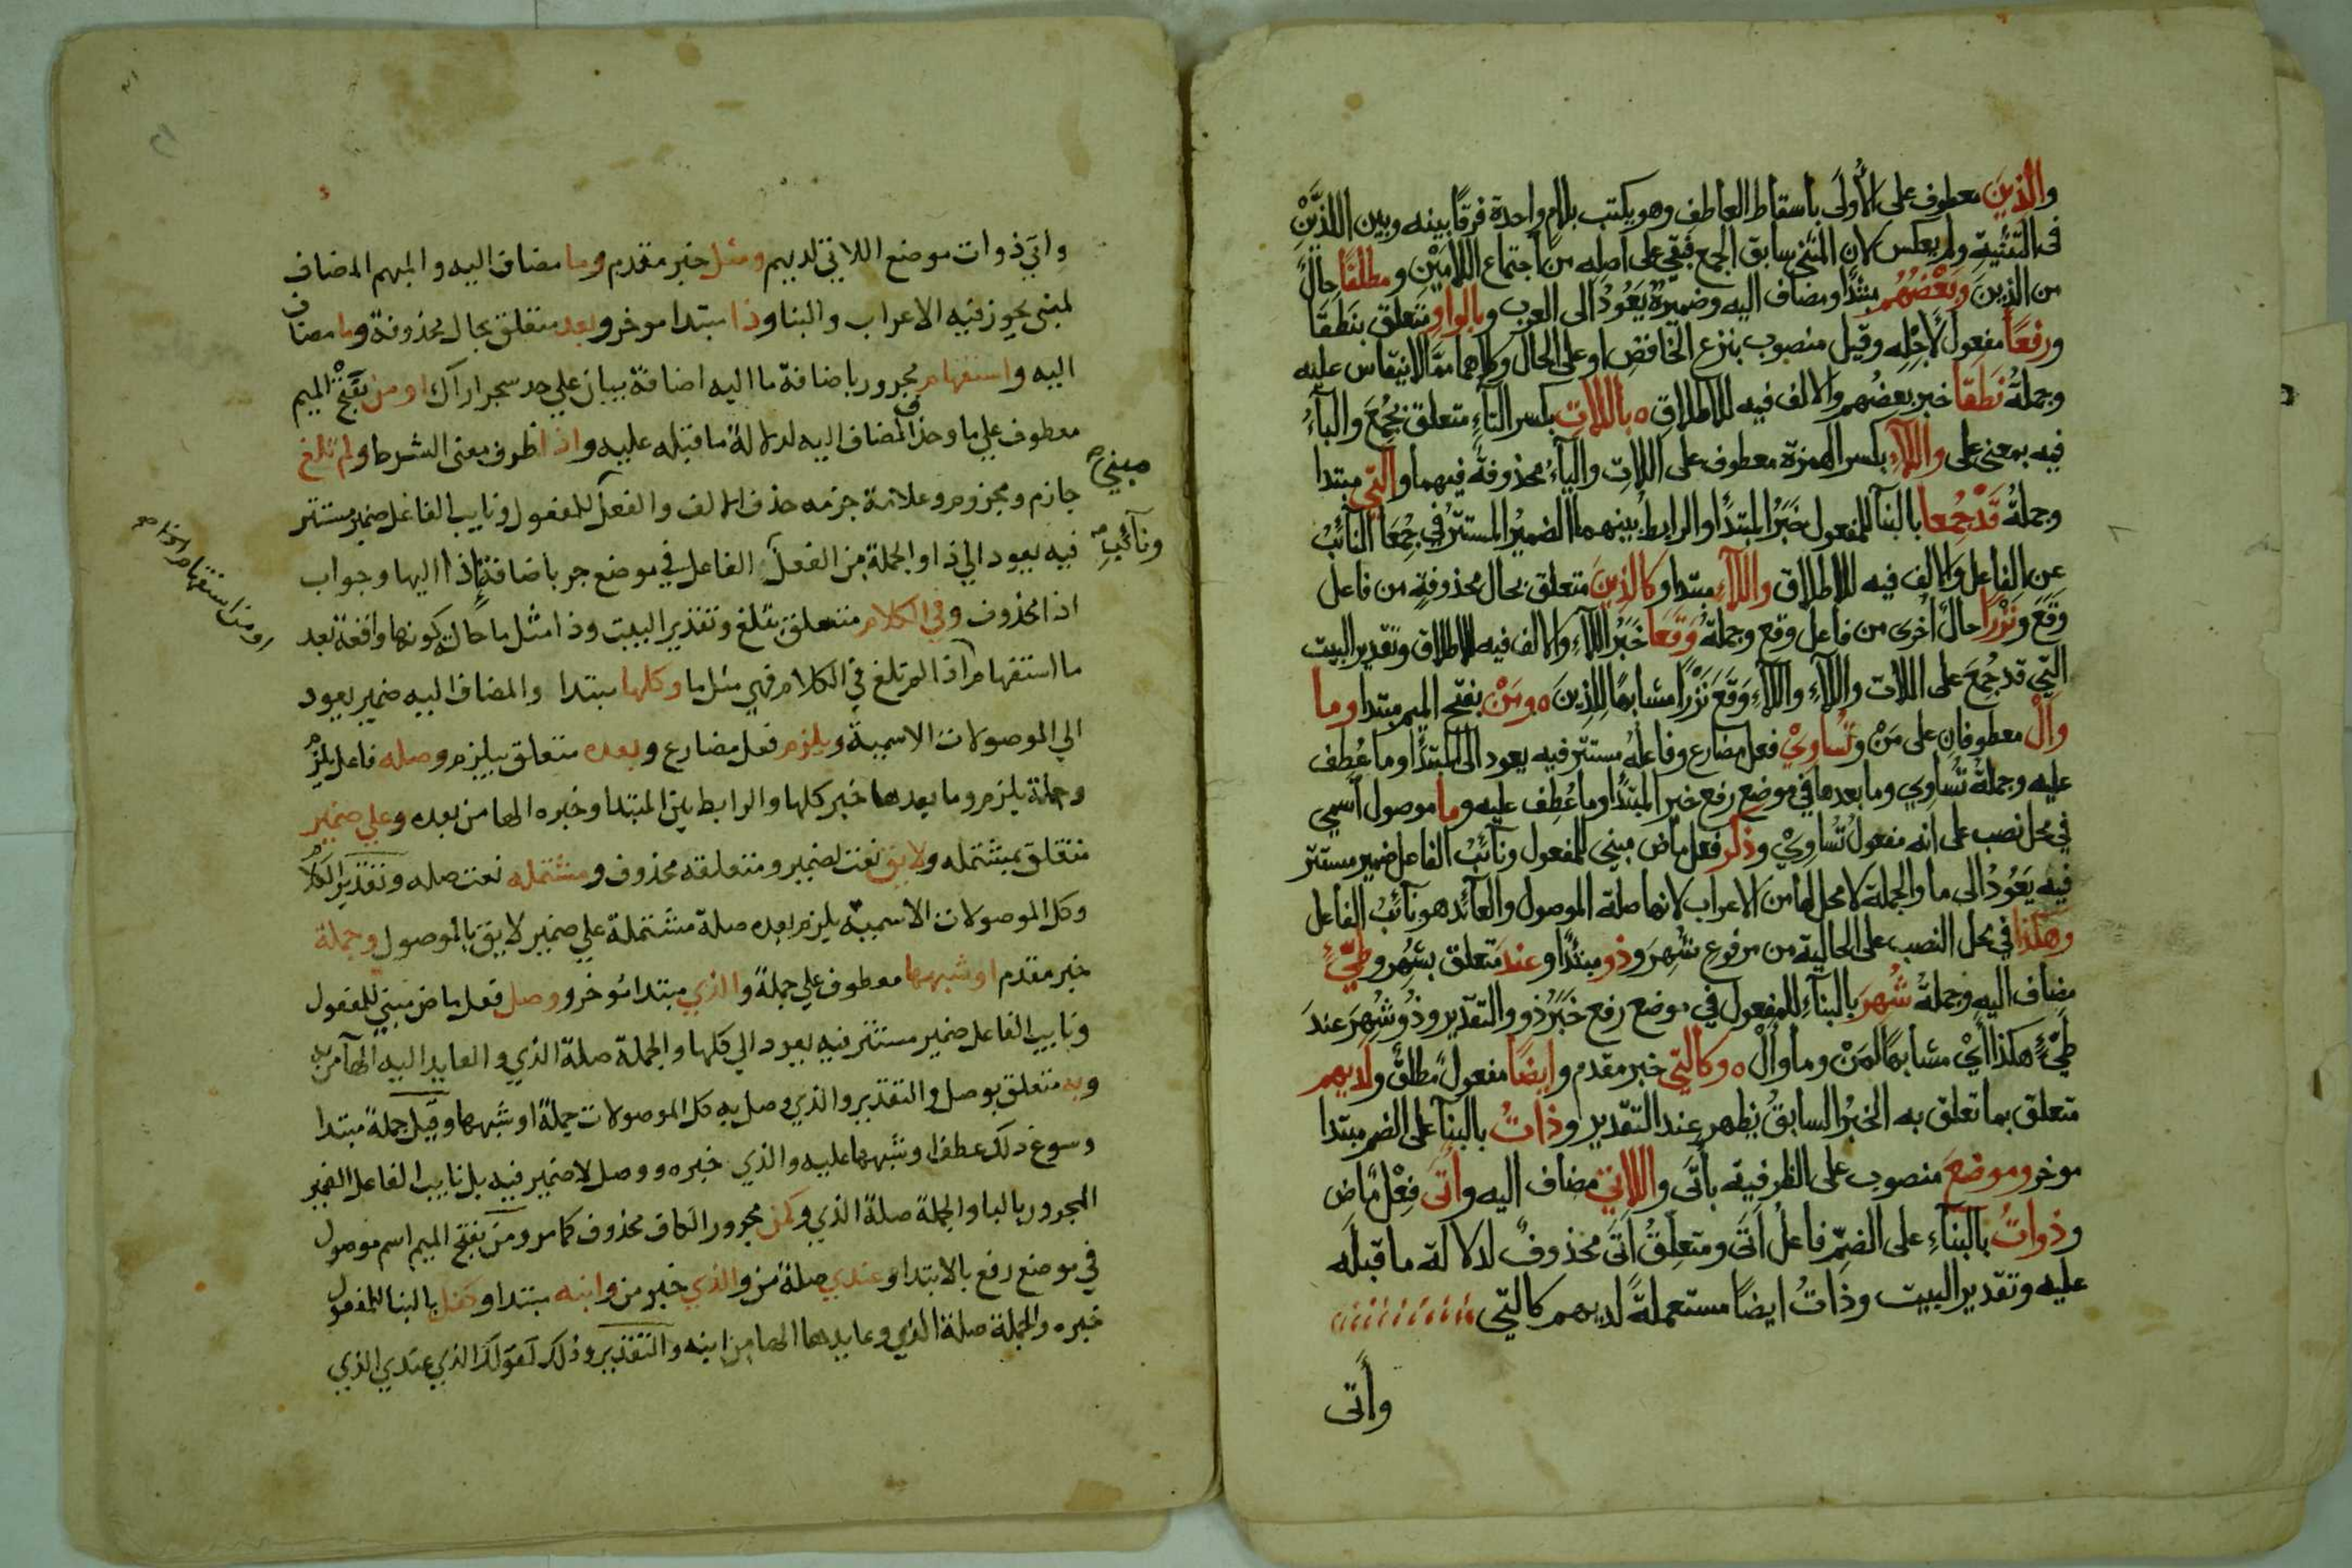 والذين معطوف على الأولى باسقاط العاطف وهو يكتب بلام واحدة فرقًا بينه وبين اللذَيْنِ
فى التثنية ولم يعكس لان المثنى سابق الجمع فبقي على اصله من اجتماع اللامين ومطلقًا حال
من الذين وبعضهم مبتدا ومضاف اليه وضميره يَعُودُ الى العرب وبالواو متعلق بنطقا
ورفعًا مفعول لأجْلِه وقيل منصوب بنزع الخافض او على الحال وكلاهما مما لا ينقاس عليه
وجملةُ نَطَقَا خبر بعضُهم والالف فيه للاطلاق ٥ باللاتِ بكسر التآءِ متعلق بجُمِعَ والبآءُ
فيه بمعنى على واللآءِ بكسر الهمزة معطوف على اللاتِ واليآءُ محذوفة فيهما والتي مبتدا
وجملةُ قَدْ جُمِعا بالبنآ للمفعول خَبَرُ المبتدأ والرابط بينهما الضميرُ المستترُ في جُمِعَا النائبُ
عن الفاعل والالف فيه للاطلاق واللآءِ مبتدا وكالذينَ متعلق بحال محذوفةٍ من فاعل
وقَعَ ونَزْرًا حالٌ أخرى من فاعل وقع وجملةُ وَقَعَا خَبَرُ اللآءِ والالف فيه للاطلاق وتقدير البيت
التي قد جُمِعَ على اللات واللآءِ واللآءِ وَقَعَ نَزْرًا مشابهًا للذينَ ٥ ومَنْ بفتح الميم مبتدا وما
وألْ معطوفان على مَنْ وتُسَاوِيْ فعل مضارع وفاعلُهُ مستتر فيه يعود الى المبتدأ وما عُطِف
عليه وجملة تُسَاوِي وما بعدها في موضع رفع خبر المبتدأ وما عُطِفَ عليه وما موصول اسمي
في محل نصب على انه مفعولُ تُسَاوِيْ وذُكِر فعل ماض مبني للمفعول ونآئبُ الفاعل ضمير مستتر
فيه يَعُودُ الى ما والجملة لا محل لها من الاعراب لانها صلة الموصول والعآئد هو نآئبُ الفاعل
وهكذا في محل النصب على الحالية من مرفوع شُهِرَ وذو مبتدأ وعند متعلق بشهر وطيّءٍ
مضاف اليه وجملةُ شُهِرَ بالبنآءِ للمفعول في موضع رفع خَبَرُ ذو والتقدير وذُو شُهِرَ عندَ
طيّءٍ هكذا أيْ مشابهًا لمَنْ وما وألْ ٥ وكالتي خبر مقدم وايضًا مفعولٌ مطلقٌ ولديهم
متعلق بما تعلق به الخبرُ السابقُ يظهر عند التقدير وذاتُ بالبنآ على الضم مبتدا
موخر وموضعَ منصوب على الظرفية بأتَى واللاتي مضاف اليه وأتَى فِعْلٌ مَاضٍ
وذواتُ بالبنآءِ على الضمّ فاعلُ أتَى ومتعلِقُ أتَى محذوفٌ لدلالة ما قبله
عليه وتقدير البيت وذاتُ ايضًا مستعملةً لديهم كالتي
وأتى
واتي ذوات موضع اللاتي لديهم ومثل خبر مقدم وما مضاف اليه والمبهم المضاف
لمبني يجوز فيه الاعراب والبنا وذا مبتدا موخر وبعد متعلق بحال محذوفة وما مضاف
اليه واستفهام مجرور باضافة ما اليه اضافة بيان علي حد سجر اراك او من بفتح الميم
معطوف علي ما وحذف المضاف اليه لدلالة ما قبله عليه واذا ظرف مضمن معنى الشرط ولم تلغ
جازم ومجزوم وعلامة جزمه حذف الالف والفعل للمفعول ونايب الفاعل ضمير مستتر
مبني
فيه يعود الي ذا والجملة من الفعل الفاعل في موضع جر باضافة اذا اليها وجواب
ونآئب
اذا محذوف وفي الكلام متعلق بتلغ وتقدير البيت وذا مثل ما حالة كونها واقعة بعد
ما استفهام اذا لم تلغ في الكلام فهي مثل ما وكلها مبتدا والمضاف اليه ضمير يعود
او من استفهام اذا
الي الموصولات الاسمية ويلزم فعل مضارع وبعده متعلق بيلزم وصله فاعل يلزم
وجملة يلزم وما بعدها خبر كلها والرابط بين المبتدا وخبره الها من بعده وعلي ضمير
متعلق بمشتمله ولايق نعت لضمير ومتعلقه محذوف ومشتمله نعت صله وتقدير الكلام
وكل الموصولات الاسمية يلزم بعده صلة مشتملة علي ضمير لايق بالموصول وجملة
خبر مقدم او شبهها معطوف علي جملة والذي مبتدا مؤخر ووصل فعل ماض مبني للمفعول
ونايب الفاعل ضمير مستتر فيه يعود الي كلها والجملة صلة الذي والعايد اليه الهآ من به
وبه متعلق بوصل والتقدير والذي وصل به كل الموصولات جملة او شبهها وقيل جملة مبتدا
وسوغ ذلك عطف او شبهها عليه والذي خبره ووصل لا ضمير فيه بل نايب الفاعل الضمير
المجرور بالبا والجملة صلة الذي وكمن مجرور الكاف محذوف كما مر ومن بفتح الميم اسم موصول
في موضع رفع بالابتدا وعندي صلة من والذي خبر من وابنه مبتدا وكفل بالبنا للمفعول
خبره والجملة صلة الذي وعايدها الها من ابنه والتقدير وذلك كقولك الذي عندي الذي